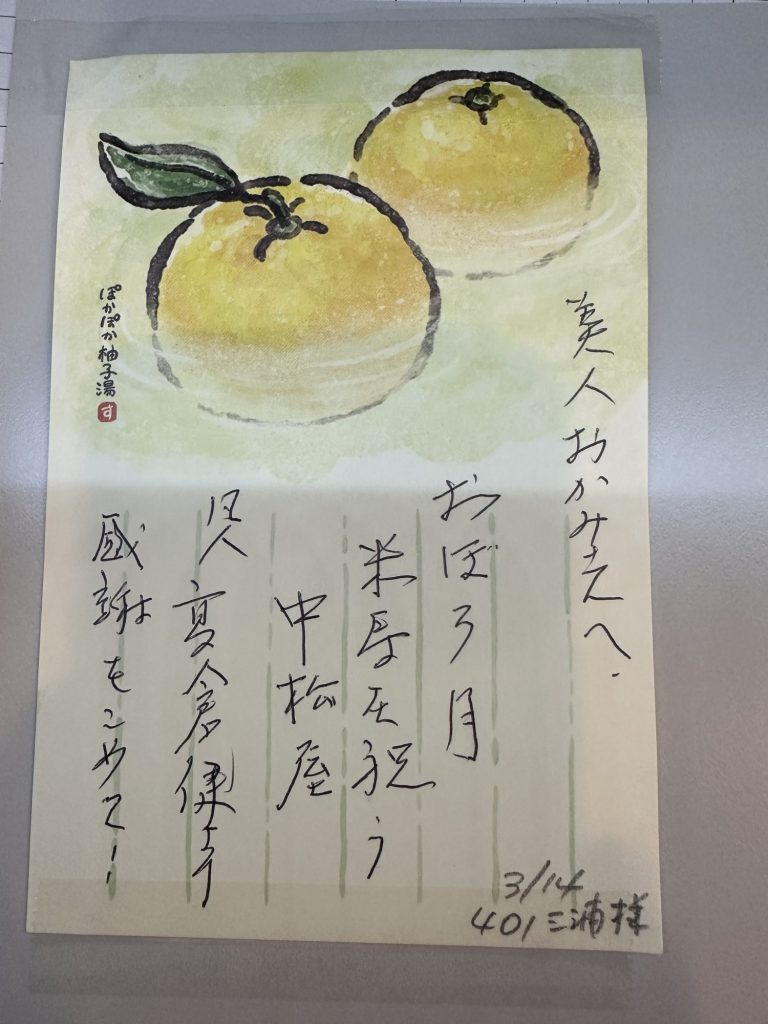 美人おかみさんへ.
おぼろ月
米寿を祝う
中松屋
夏倉健より
感謝をこめて!
ぽかぽか柚子湯 す
3/14
401 三浦様